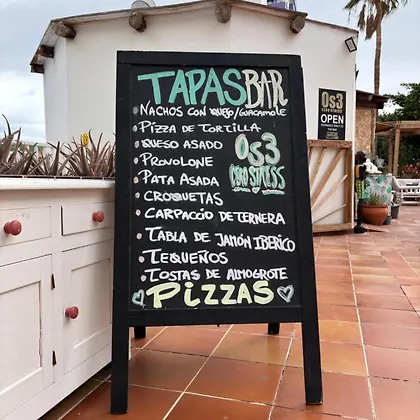 TAPAS BAR
• NACHOS CON QUESO/GUACAMOLE
• PIZZA DE TORTILLA
• QUESO ASADO
• PROVOLONE
• PATA ASADA
• CROQUETAS
• CARPACCIO DE TERNERA
• TABLA DE JAMÓN IBERICO
• TEQUEÑOS
• TOSTAS DE ALMOGROTE
PIZZAS
Os3
CERO STRESS
Os3
CERO STRESS
OPEN